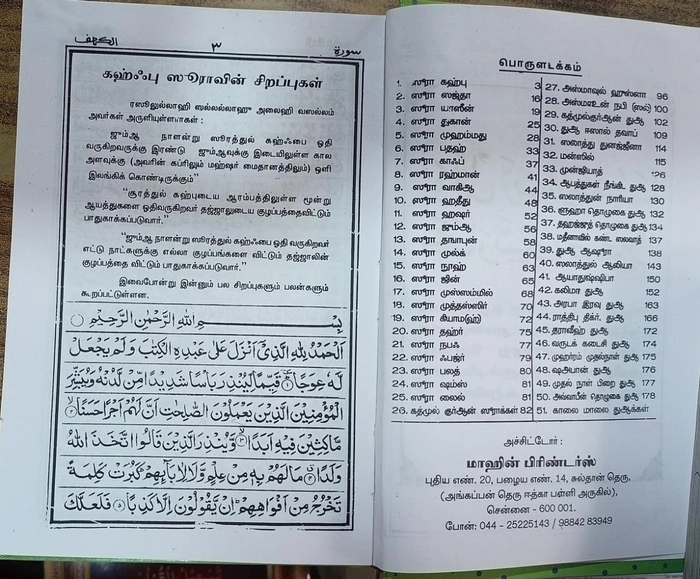 الكهف ٣ سورة
கஹ்ஃபு ஸூராவின் சிறப்புகள்
ரஸூலுல்லாஹி ஸல்லல்லாஹு அலைஹி வஸல்லம்
அவர்கள் அருளியுள்ளார்கள் :
ஜும்ஆ நாளன்று ஸூரத்துல் கஹ்ஃபை ஓதி
வருகிறவருக்கு இரண்டு ஜும்ஆவுக்கு இடையிலுள்ள கால
அளவுக்கு (அவரின் கப்ரிலும் மஹ்ஷர் மைதானத்திலும்) ஒளி
இலங்கிக் கொண்டிருக்கும்"
"சூரத்துல் கஹ்புடைய ஆரம்பத்திலுள்ள மூன்று
ஆயத்துகளை ஓதிவருகிறவர் தஜ்ஜாலுடைய குழப்பத்தைவிட்டும்
பாதுகாக்கப்படுவார்."
"ஜும்ஆ நாளன்று ஸூரத்துல் கஹ்ஃபை ஓதி வருகிறவர்
எட்டு நாட்களுக்கு எல்லா குழப்பங்களை விட்டும் தஜ்ஜாலின்
குழப்பத்தை விட்டும் பாதுகாக்கப்படுவார்."
இவைபோன்று இன்னும் பல சிறப்புகளும் பலன்களும்
கூறப்பட்டுள்ளன.
بِسْمِ اللهِ الرَّحْمٰنِ الرَّحِيْمِ
اَلْحَمْدُ لِلّٰهِ الَّذِىْ اَنْزَلَ عَلٰى عَبْدِهِ الْكِتٰبَ وَلَمْ يَجْعَلْ
لَّهٗ عِوَجًا ۞ قَيِّمًا لِّيُنْذِرَ بَاْسًا شَدِيْدًا مِّنْ لَّدُنْهُ وَيُبَشِّرَ
الْمُؤْمِنِيْنَ الَّذِيْنَ يَعْمَلُوْنَ الصّٰلِحٰتِ اَنَّ لَهُمْ اَجْرًا حَسَنًا ۙ۲
مَّاكِثِيْنَ فِيْهِ اَبَدًا ۙ۳ وَّيُنْذِرَ الَّذِيْنَ قَالُوا اتَّخَذَ اللهُ
وَلَدًا ۴ مَا لَهُمْ بِهٖ مِنْ عِلْمٍ وَّلَا لِاٰبَآئِهِمْ كَبُرَتْ كَلِمَةً
تَخْرُجُ مِنْ اَفْوَاهِهِمْ اِنْ يَّقُوْلُوْنَ اِلَّا كَذِبًا ۵ فَلَعَلَّكَ
பொருளடக்கம்
1. ஸூரா கஹ்பு 3
2. ஸூரா ஸஜ்தா 16
3. ஸூரா யாஸீன் 19
4. ஸூரா துகான் 25
5. ஸூரா முஹம்மது 28
6. ஸூரா பதஹ் 33
7. ஸூரா காஃப் 37
8. ஸூரா ரஹ்மான் 41
9. ஸூரா வாகிஆ 44
10. ஸூரா ஹதீது 48
11. ஸூரா ஹஷர் 52
12. ஸூரா ஜும்ஆ 56
13. ஸூரா தஙாபுன் 58
14. ஸூரா முல்க் 60
15. ஸூரா நூஹ் 63
16. ஸூரா ஜின் 65
17. ஸூரா முஸ்ஸம்மில் 68
18. ஸூரா முத்தஸ்ஸிர் 70
19. ஸூரா கியாம(ஹ்) 72
20. ஸூரா தஹர் 75
21. ஸூரா நபஃ 77
22. ஸூரா ஃபஜ்ர் 79
23. ஸூரா பலத் 80
24. ஸூரா ஷம்ஸ் 81
25. ஸூரா லைல் 81
26. கத்முல் குர்ஆன் ஸூராக்கள் 82
27. அஸ்மாவுல் ஹுஸ்னா 96
28. அஸ்மாஉன் நபி (ஸல்) 100
29. கத்முல்குர்ஆன் துஆ 102
30. துஆ ஈஸால் தவாப் 109
31. ஸலாத்து துனஜ்ஜீனா 114
32. மன்ஸில் 115
33. முன்ஜியாத் 126
34. ஆபத்துகள் நீங்கிட துஆ 128
35. ஸலாத்துன் நாரியா 130
36. ளுஹா தொழுகை துஆ 132
37. தஹஜ்ஜுத் தொழுகை துஆ 134
38. மதீனாவில் கண்ட ஸலவாத் 137
39. துஆ ஆஷூரா 138
40. ஸலாத்துல் ஆலியா 143
41. ஆயாதுஷ்ஷிபா 150
42. கலிமா துஆ 152
43. அரபா இரவு துஆ 163
44. ராத்திபு திக்ர், துஆ 166
45. தராவீஹ் துஆ 172
46. வருடக் கடைசி துஆ 174
47. முஹர்ரம் முதல்நாள் துஆ 175
48. ஷஅபான் துஆ 176
49. முதல் நாள் பிறை துஆ 177
50. அவ்வாபீன் தொழுகை துஆ 178
51. காலை மாலை துஆக்கள்
அச்சிட்டோர் :
மாஹின் பிரிண்டர்ஸ்
புதிய எண். 20, பழைய எண். 14, சுல்தான் தெரு,
(அங்கப்பன் தெரு ஈத்கா பள்ளி அருகில்),
சென்னை - 600 001.
போன்: 044 - 25225143 / 98842 83949